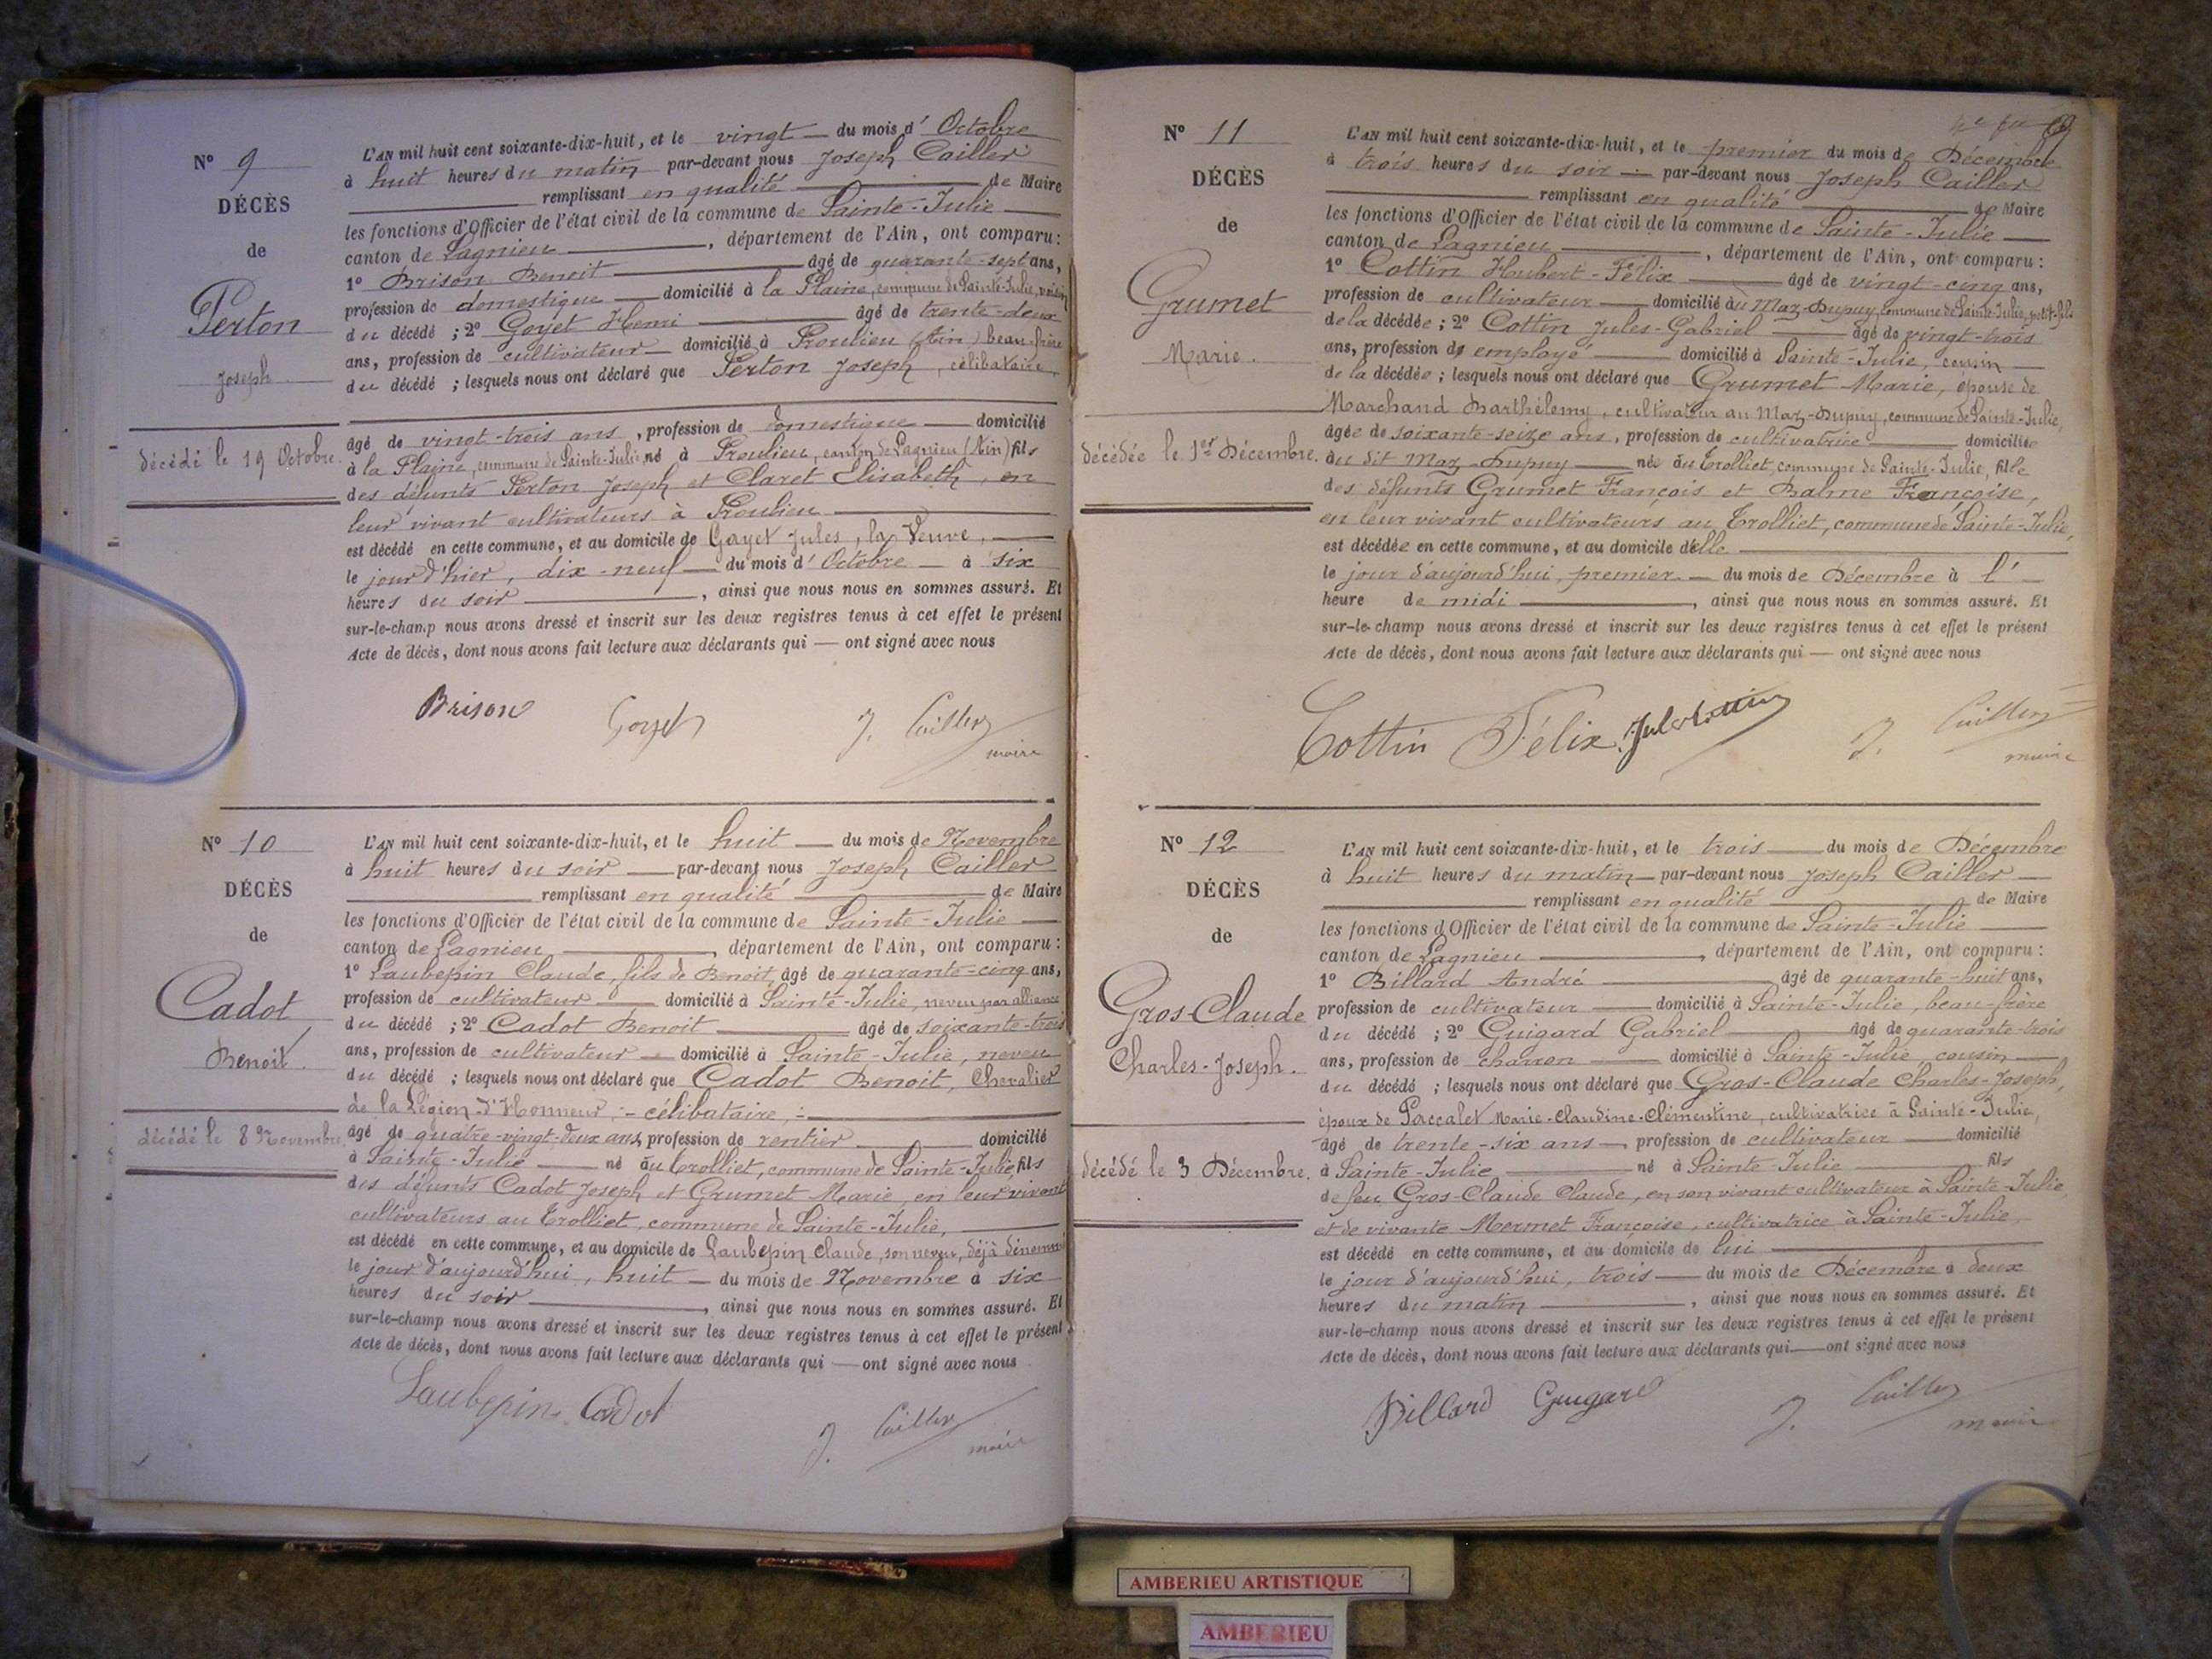 N° 9
DÉCÈS
de
Perton
Joseph
décédé le 19 Octobre.
L'AN mil huit cent soixante-dix-huit, et le vingt du mois d'Octobre
à huit heures du matin par-devant nous Joseph Cailler
remplissant en qualité de Maire
les fonctions d'Officier de l'état civil de la commune de Sainte-Julie
canton de Lagnieu, département de l'Ain, ont comparu:
1° Brison Benoit âgé de quarante-sept ans,
profession de domestique domicilié à la Plaine, commune de Sainte-Julie, voisin
du décédé ; 2° Goyet Henri âgé de trente-deux
ans, profession de cultivateur domicilié à Proulieu (Ain) beau-frère
du décédé ; lesquels nous ont déclaré que Perton Joseph, célibataire,
âgé de vingt-trois ans, profession de domestique domicilié
à la Plaine, commune de Sainte-Julie né à Proulieu, canton de Lagnieu (Ain) fils
des défunts Perton Joseph et Claret Elisabeth, en
leur vivant cultivateurs à Proulieu
est décédé en cette commune, et au domicile de Gayet Jules, la Veuve,
le jour d'hier, dix-neuf du mois d'Octobre à six
heures du soir, ainsi que nous nous en sommes assuré. Et
sur-le-champ nous avons dressé et inscrit sur les deux registres tenus à cet effet le présent
Acte de décès, dont nous avons fait lecture aux déclarants qui — ont signé avec nous
Brison Goyet J. Cailler
maire
N° 10
DÉCÈS
de
Cadot
Benoit.
décédé le 8 Novembre.
L'AN mil huit cent soixante-dix-huit, et le huit du mois de Novembre
à huit heures du soir par-devant nous Joseph Cailler
remplissant en qualité de Maire
les fonctions d'Officier de l'état civil de la commune de Sainte-Julie
canton de Lagnieu, département de l'Ain, ont comparu:
1° Laubepin Claude, fils de Benoit, âgé de quarante-cinq ans,
profession de cultivateur domicilié à Sainte-Julie, neveu par alliance
du décédé ; 2° Cadot Benoit âgé de soixante-trois
ans, profession de cultivateur domicilié à Sainte-Julie, neveu
du décédé ; lesquels nous ont déclaré que Cadot Benoit, Chevalier
de la Légion-d'Honneur, - célibataire, -
âgé de quatre-vingt-deux ans, profession de rentier domicilié
à Sainte-Julie né au Trolliet, commune de Sainte-Julie, fils
des défunts Cadot Joseph et Grumet Marie, en leur vivant
cultivateurs au Trolliet, commune de Sainte-Julie,
est décédé en cette commune, et au domicile de Laubepin Claude, son neveu, déjà dénommé
le jour d'aujourd'hui, huit du mois de Novembre à six
heures du soir, ainsi que nous nous en sommes assuré. Et
sur-le-champ nous avons dressé et inscrit sur les deux registres tenus à cet effet le présent
Acte de décès, dont nous avons fait lecture aux déclarants qui — ont signé avec nous
Laubepin Cadot J. Cailler
maire
N° 11
DÉCÈS
de
Grumet
Marie.
décédée le 1er Décembre.
L'AN mil huit cent soixante-dix-huit, et le premier du mois de Décembre
à trois heures du soir par-devant nous Joseph Cailler
remplissant en qualité de Maire
les fonctions d'Officier de l'état civil de la commune de Sainte-Julie
canton de Lagnieu, département de l'Ain, ont comparu:
1° Cottin Hubert-Félix âgé de vingt-cinq ans,
profession de cultivateur domicilié au Maz-Dupuy, commune de Sainte-Julie, petit-fils
de la décédée ; 2° Cottin Jules-Gabriel âgé de vingt-trois
ans, profession d'employé domicilié à Sainte-Julie, cousin
de la décédée ; lesquels nous ont déclaré que Grumet Marie, épouse de
Marchand Barthélemy, cultivateur au Maz-Dupuy, commune de Sainte-Julie,
âgée de soixante-seize ans, profession de cultivatrice domiciliée
au dit Maz-Dupuy née au Trolliet, commune de Sainte-Julie, fille
des défunts Grumet François et Balme Françoise,
en leur vivant cultivateurs au Trolliet, commune de Sainte-Julie,
est décédée en cette commune, et au domicile d'elle
le jour d'aujourd'hui, premier du mois de Décembre à l'
heure de midi, ainsi que nous nous en sommes assuré. Et
sur-le-champ nous avons dressé et inscrit sur les deux registres tenus à cet effet le présent
Acte de décès, dont nous avons fait lecture aux déclarants qui — ont signé avec nous
Cottin Félix Jules Cottin J. Cailler
maire
N° 12
DÉCÈS
de
Gros-Claude
Charles-Joseph.
décédé le 3 Décembre.
L'AN mil huit cent soixante-dix-huit, et le trois du mois de Décembre
à huit heures du matin par-devant nous Joseph Cailler
remplissant en qualité de Maire
les fonctions d'Officier de l'état civil de la commune de Sainte-Julie
canton de Lagnieu, département de l'Ain, ont comparu:
1° Billard André âgé de quarante-huit ans,
profession de cultivateur domicilié à Sainte-Julie, beau-frère
du décédé ; 2° Guigard Gabriel âgé de quarante-trois
ans, profession de charron domicilié à Sainte-Julie, cousin
du décédé ; lesquels nous ont déclaré que Gros-Claude Charles-Joseph,
époux de Paccalet Marie-Claudine-Clémentine, cultivatrice à Sainte-Julie,
âgé de trente-six ans, profession de cultivateur domicilié
à Sainte-Julie né à Sainte-Julie fils
de feu Gros-Claude Claude, en son vivant cultivateur à Sainte-Julie
et de vivante Mermet Françoise, cultivatrice à Sainte-Julie,
est décédé en cette commune, et au domicile de lui
le jour d'aujourd'hui, trois du mois de Décembre à deux
heures du matin, ainsi que nous nous en sommes assuré. Et
sur-le-champ nous avons dressé et inscrit sur les deux registres tenus à cet effet le présent
Acte de décès, dont nous avons fait lecture aux déclarants qui — ont signé avec nous
Billard Guigard J. Cailler
maire
AMBERIEU ARTISTIQUE
AMBERIEU